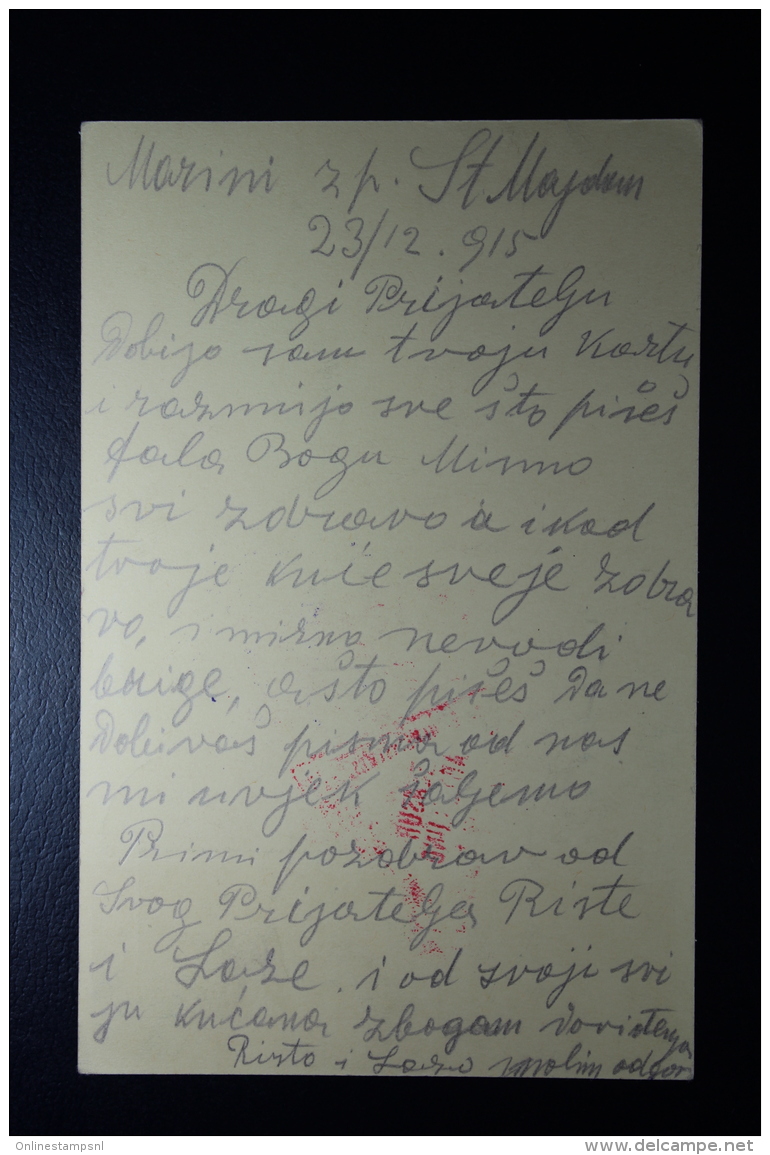 Marini z p. St Majdan
23/12. 915
Dragi Prijatelju
Dobijo sam tvoju kartu
i razmijo sve što pišeš
fala Bogu Mismo
svi zdravo a i kod
tvoje kuće sveje zdra
vo, i mirno nevodi
brige, ašto pišeš Da ne
Dobivaš pisma od nas
mi uvjek šaljemo
Primi pozdrav od
Svog Prijatelja Riste
i Laze. i od svoji svi
ju kućana zbogam Doviđenja
Risto i Lazo molim odgov
Onlinestampsnl
www.delcampe.net